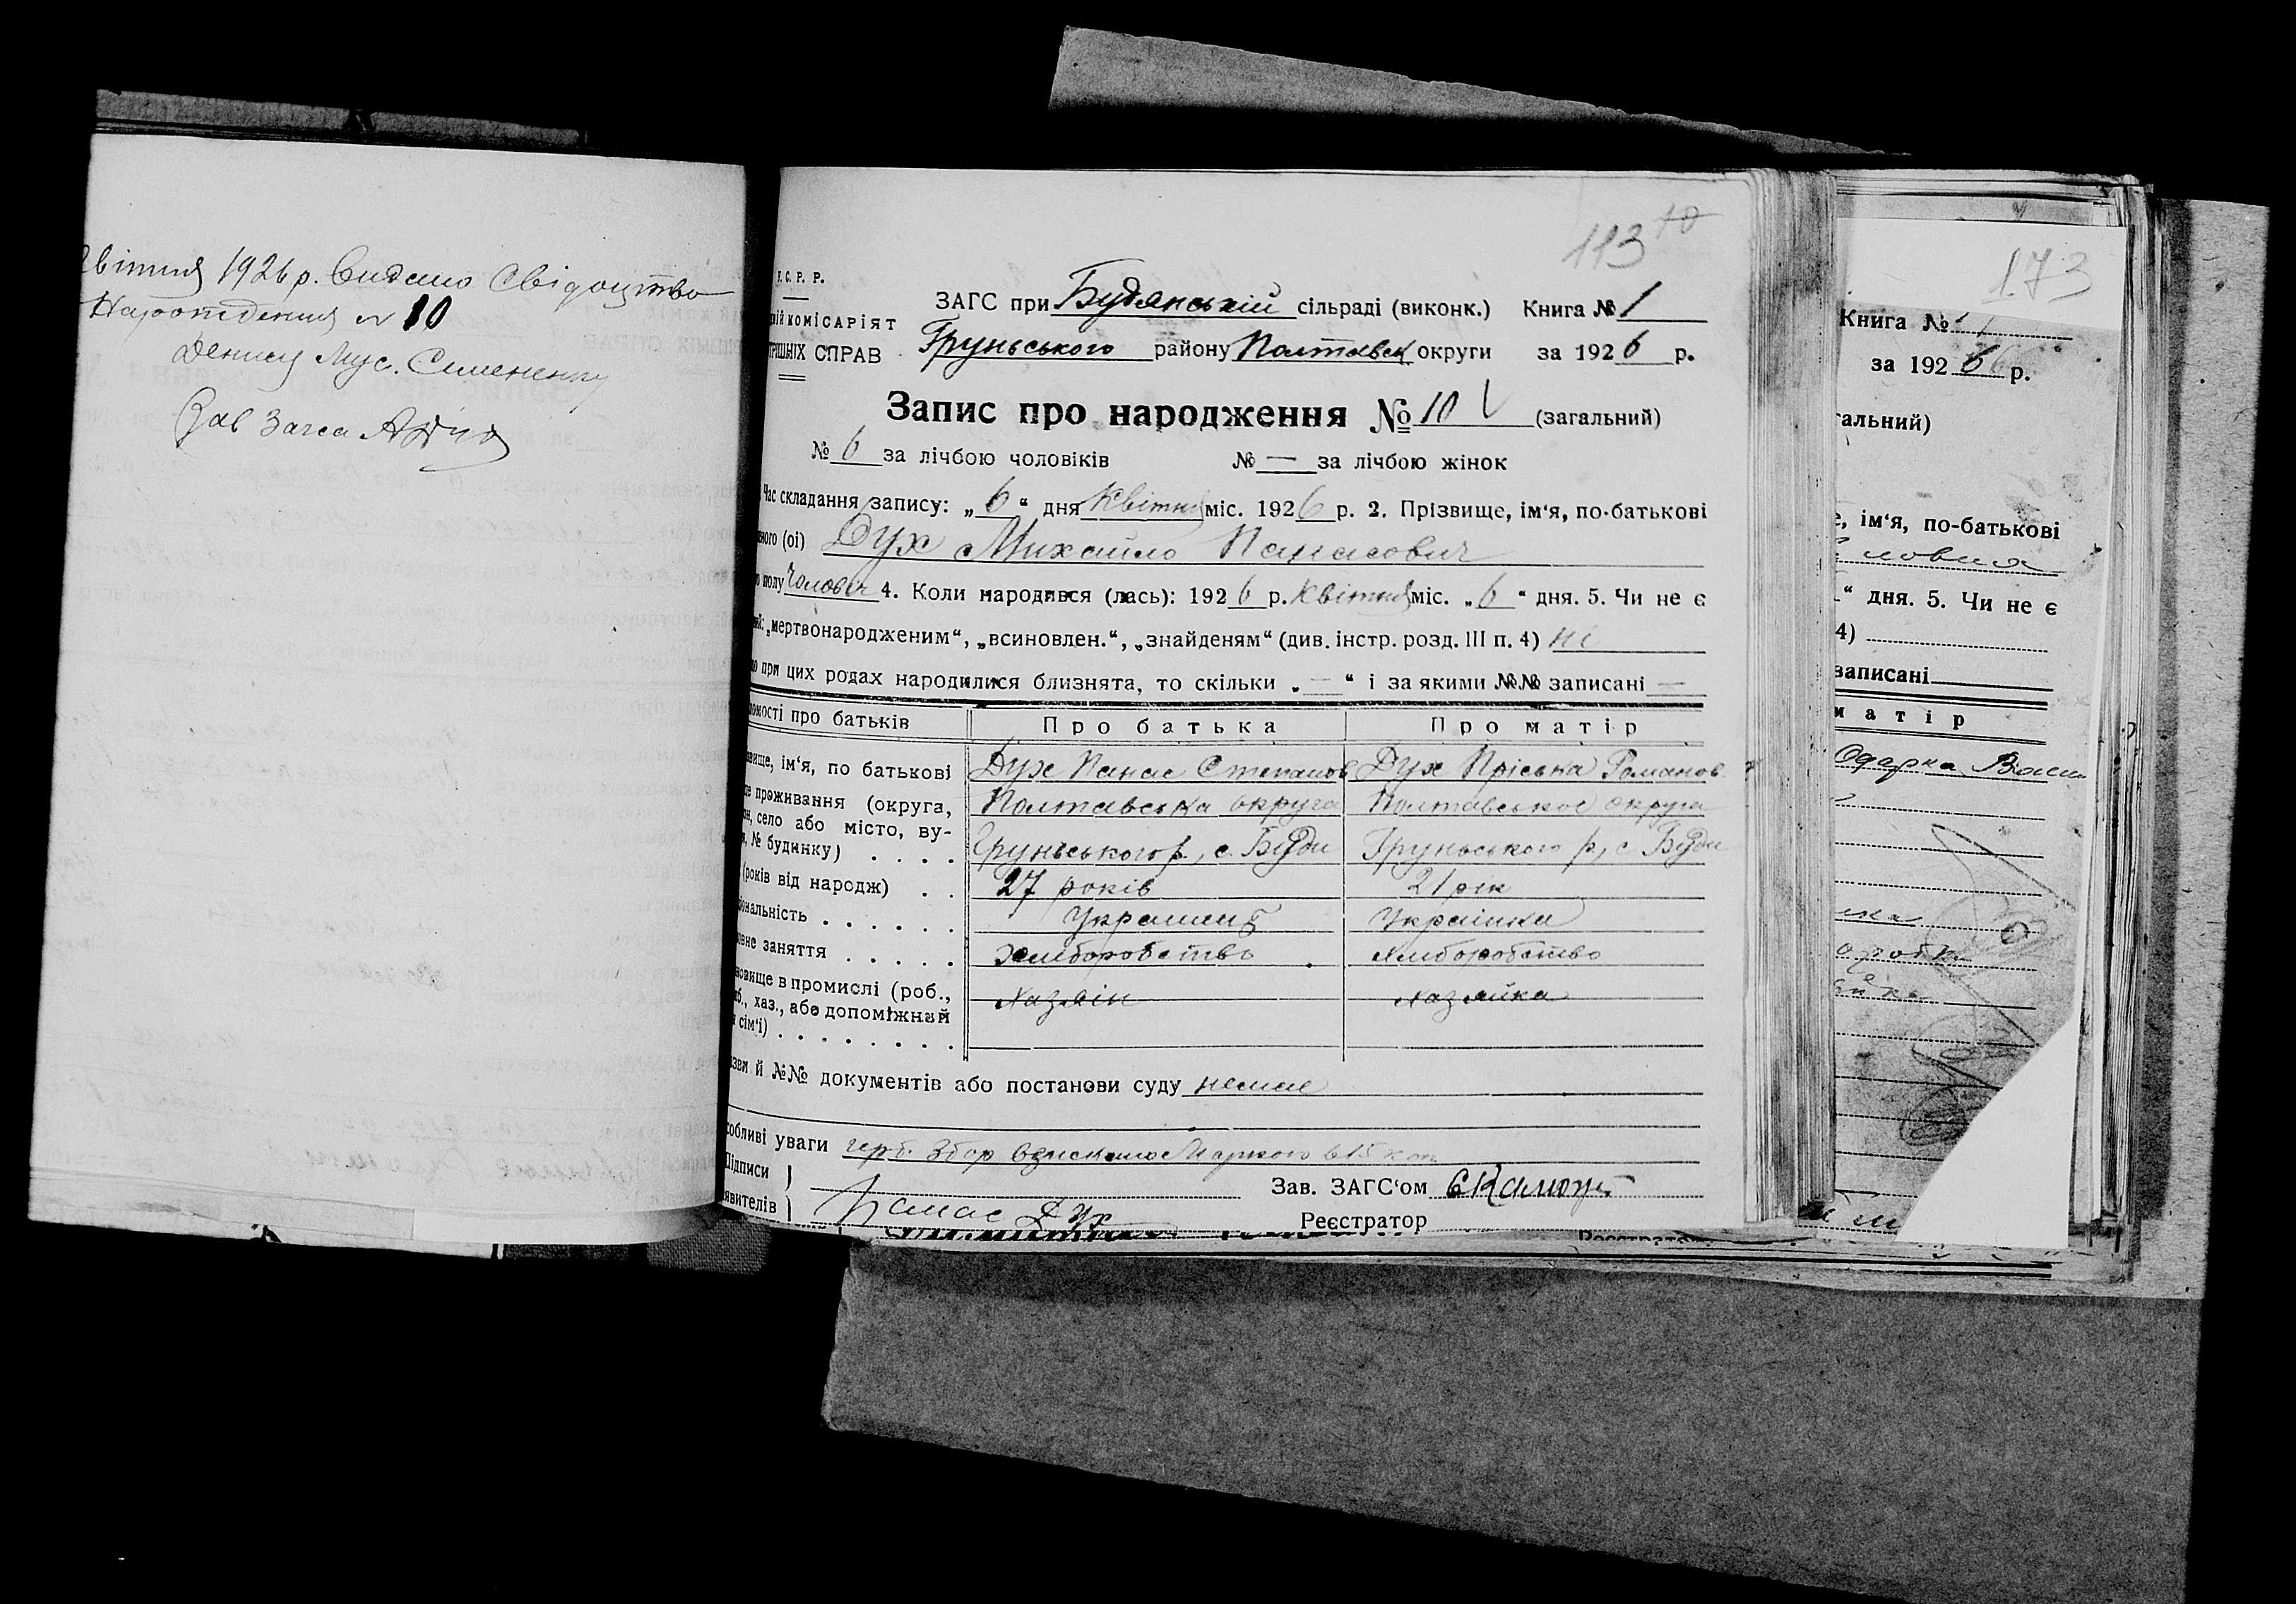 1926 р. Видано Свідоцтво
№ 10
Зав Загса
113 10
У.С.Р.Р.
КОМІСАРІЯТ
СПРАВ
ЗАГС при Будянській сільраді (виконк.) Книга № 1
Груньського району Полтавськ округи за 1926 р.
Запис про народження № 10 (загальний)
№ 6 за лічбою чоловіків № — за лічбою жінок
Час складання запису: „6“ дня Квітня міс. 1926 р. 2. Прізвище, ім‘я, по-батькові
ного (ої) Дух Михайло Панасович
полу Чоловіч 4. Коли народився (лась): 1926 р. Квітня міс. „6“ дня. 5. Чи не є
„мертвонародженим“, „всиновлен.“, „знайденям“ (див. інстр. розд. III п. 4) ні
при цих родах народилися близнята, то скільки „—“ і за якими №№ записані —
омості про батьків Про батька Про матір
вище, ім‘я, по батькові Дух Панас Степанов Дух Пріська Романов
це проживання (округа, Полтавська округа Полтавської округи
он, село або місто, ву-
№ будинку) . . . . Груньського р., с. Буди Груньського р, с Буди
(років від народж) . . 27 років 21 рік
ональність . . . . . . Українец Українка
овне заняття . . . . . Хліборобство хліборобство
новище в промислі (роб.,
хаз., або допоміжний Хазяін хазяйка
сім‘ї) . . . . . . . .
зви й №№ документів або постанови суду немає
собливі уваги герб. збор 15 коп
Підписи
явителів Панас Дух
Зав. ЗАГС‘ом
Реєстратор
173
Книга №
за 1926 р.
гальний)
е, ім‘я, по-батькові
“ дня. 5. Чи не є
4)
записані
матір
Одарка